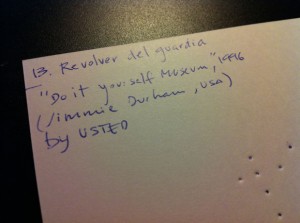 13. Revolver del guardia
"Do it yourself Museum", 1996
(Jimmie Durham, USA)
by USTED